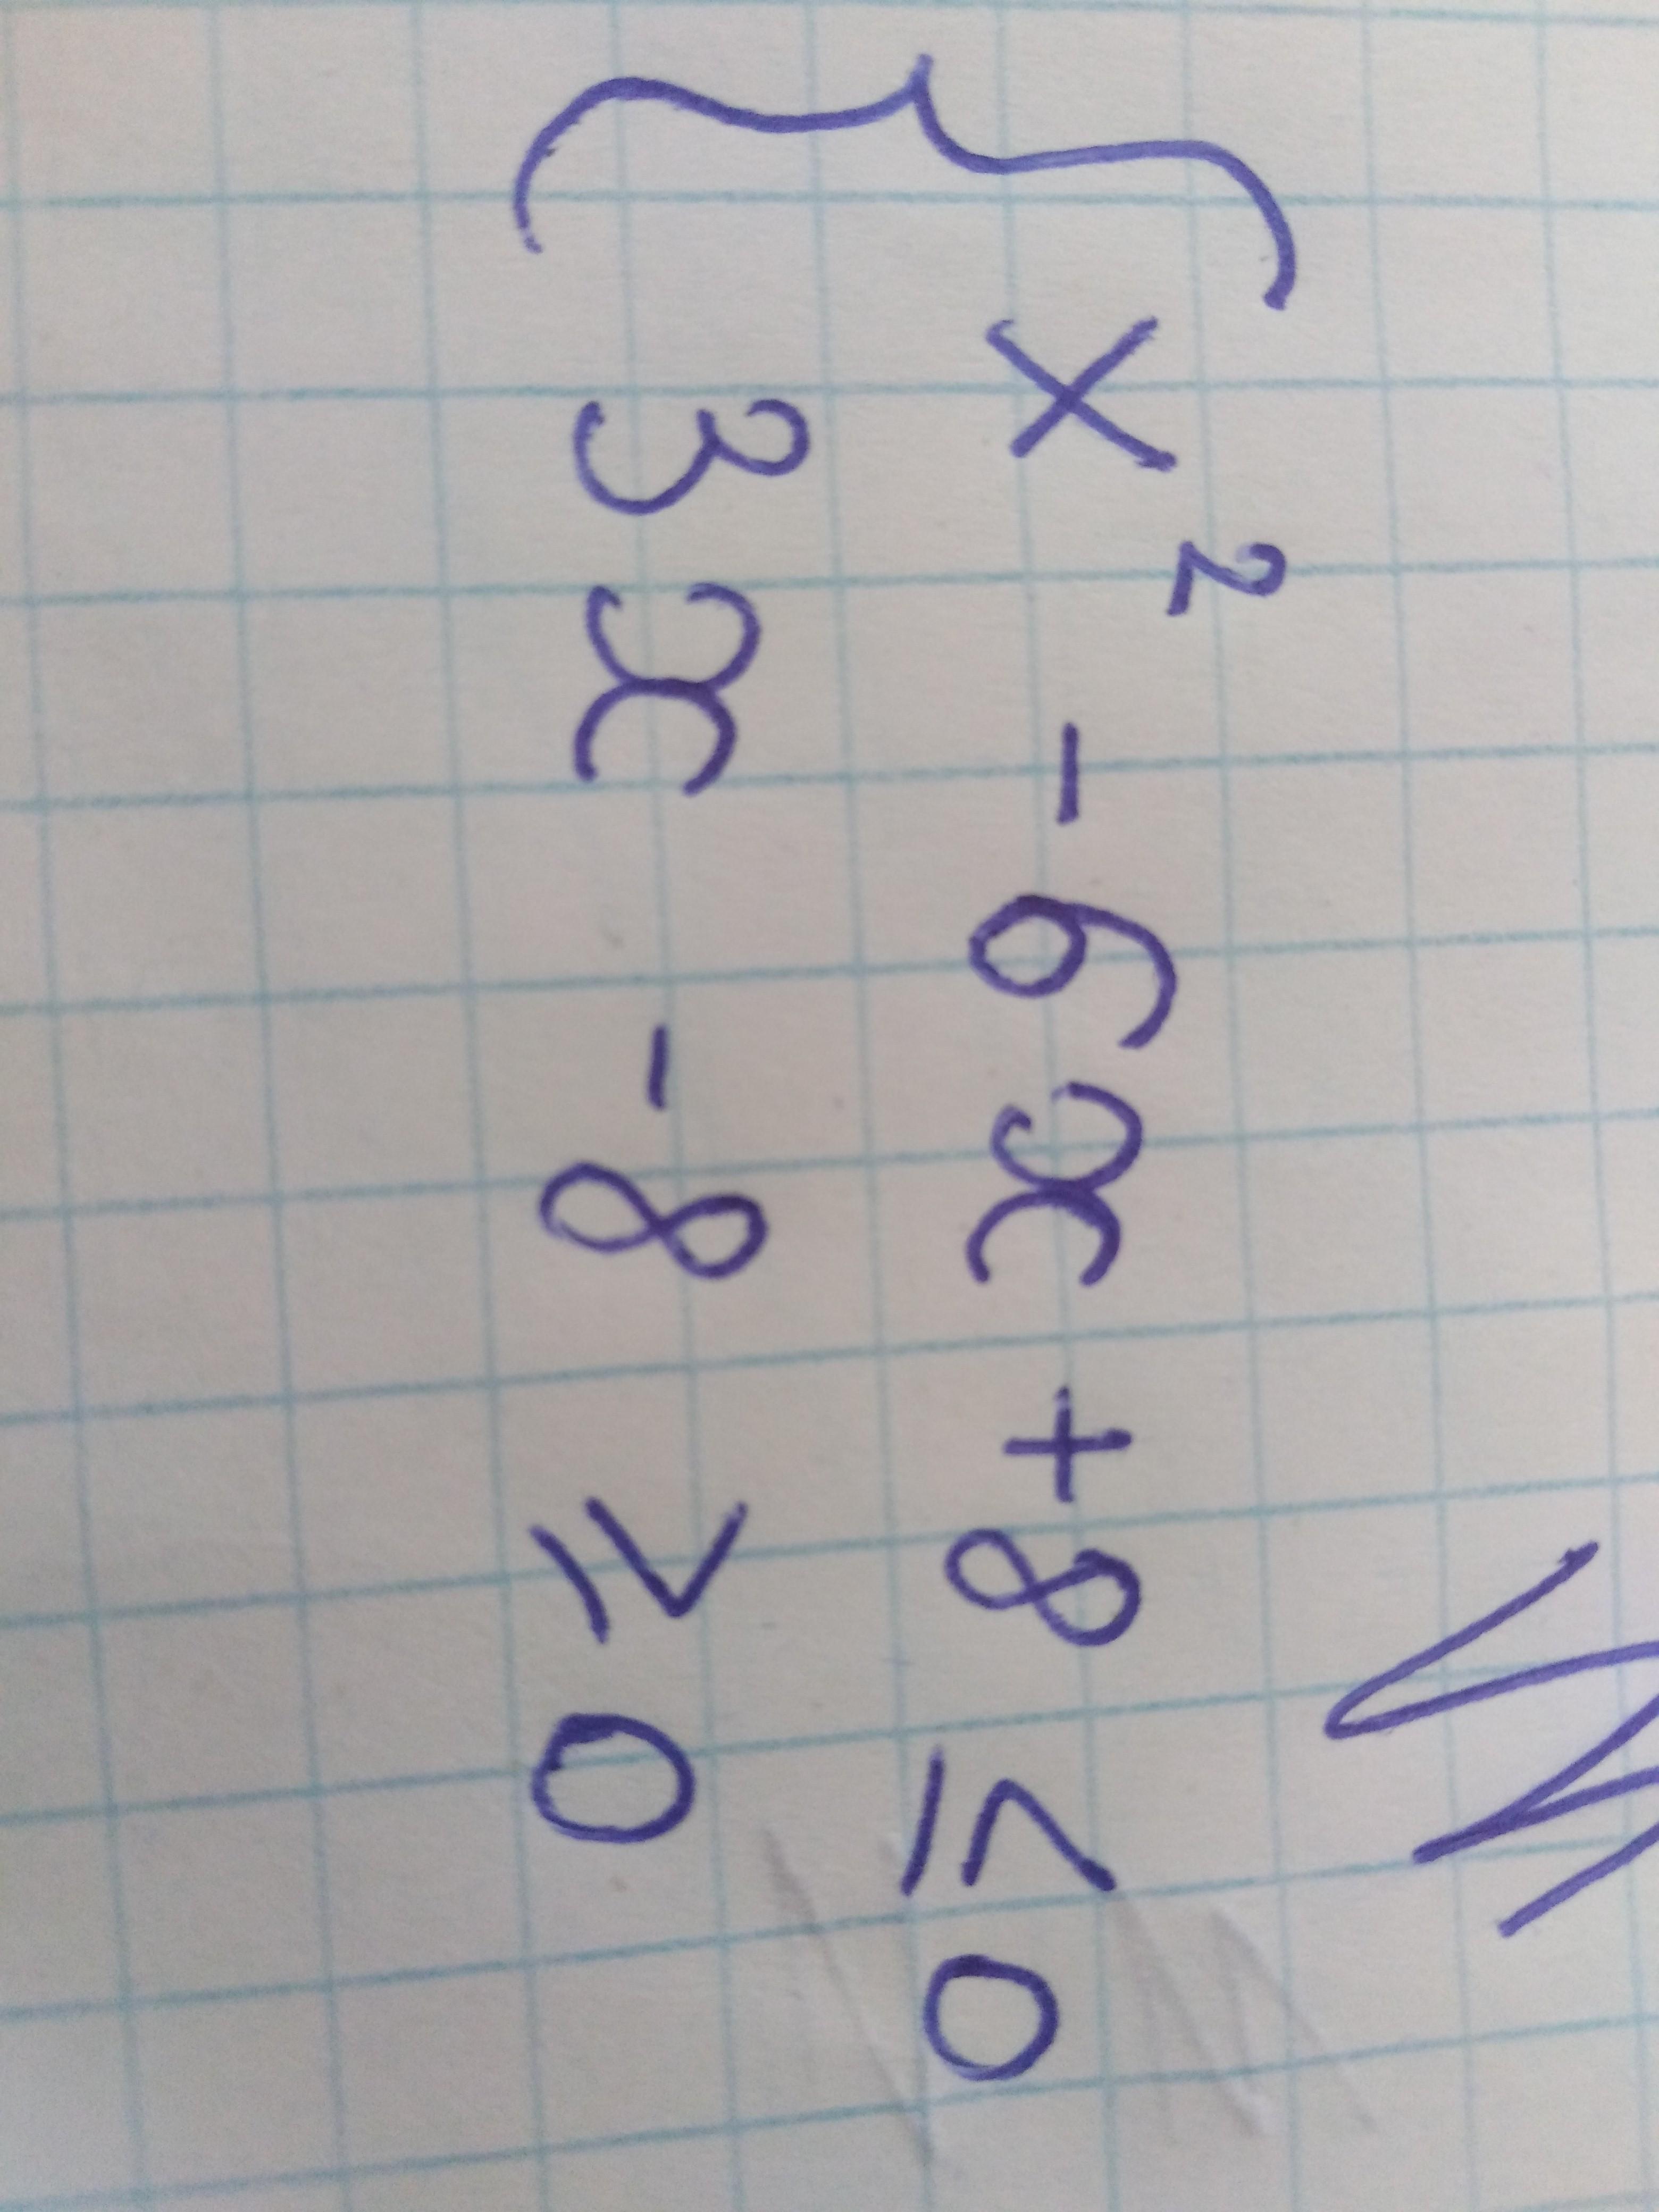 x² - 6x + 8 ≤ 0
3x - 8 ≥ 0